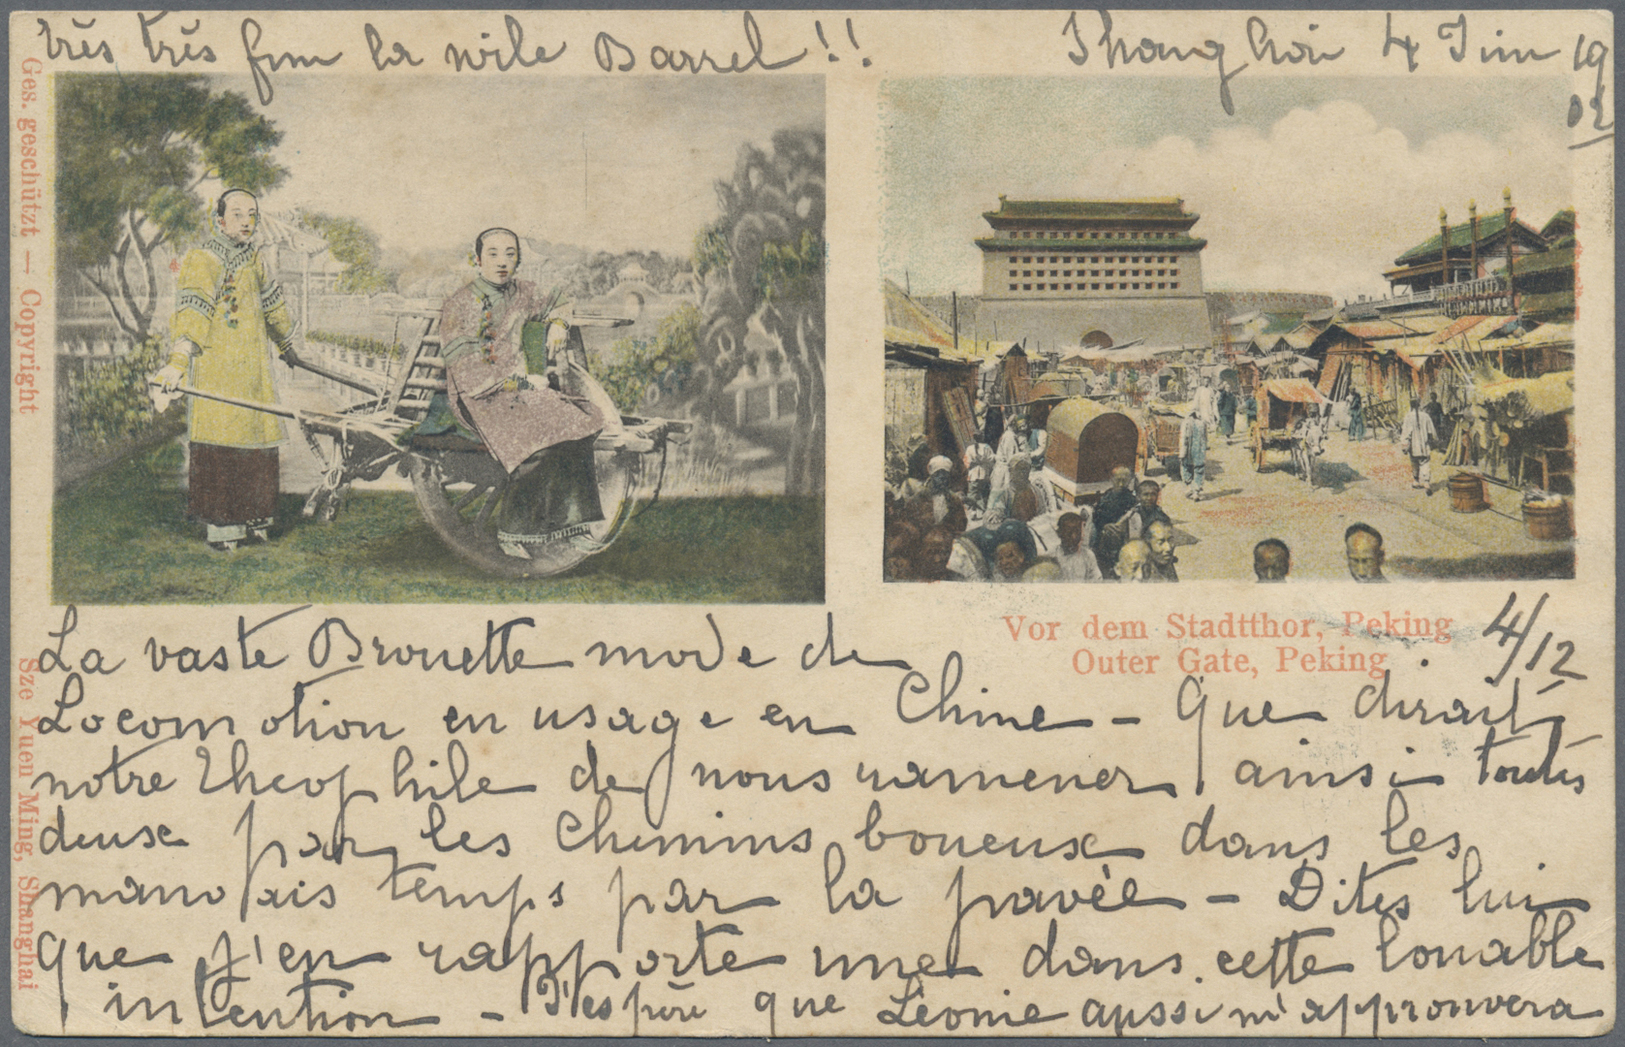 très très fun la wile Barrel!!
Shanghai 4 Juin 19
02
Ges. geschützt — Copyright
Sze Yuen Ming, Shanghai
Vor dem Stadtthor, Peking
Outer Gate, Peking
4/12
La vaste Brouette mode de
Locomotion en usage en Chine - Que dirait
notre Theophile de nous ramener ainsi toutes
deux par les Chemins boueux dans les
mauvais temps par la pavée - Dites lui
que j'en rapporte une dans cette louable
intention - J'espère que Léonie aussi m'approuvera